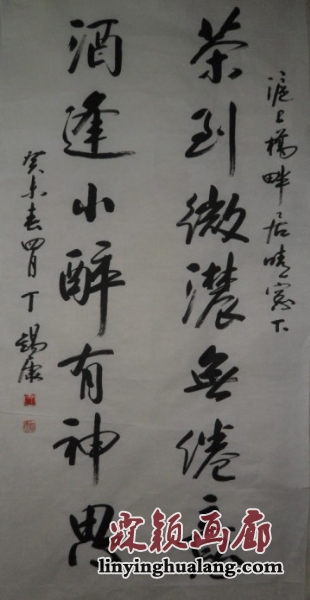 滬上橋畔居晴窓下
茶到微濃無倦意
酒逢小醉有神思
癸未春四月丁錫康
霖颖画廊
linyinghualang.com